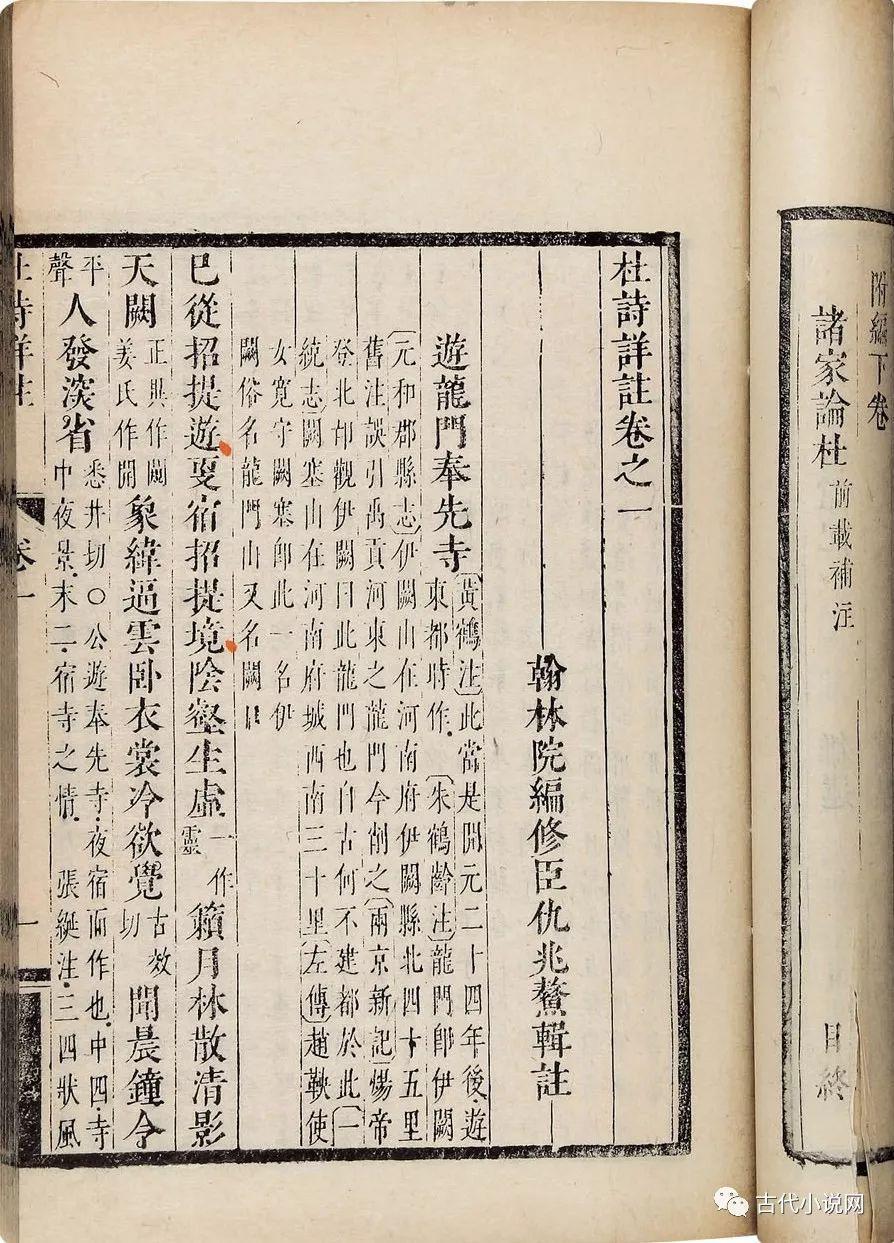 附編下卷
諸家論杜 前載補注
目終
杜詩詳註卷之一
翰林院編修臣仇兆鰲輯註
遊龍門奉先寺
黃鶴注此當是開元二十四年後遊
東都時作朱鶴齡注龍門即伊闕
元和郡縣志伊闕山在河南府伊闕縣北四十五里
舊注誤引禹貢河東之龍門今削之兩京新記煬帝
登北邙觀伊闕曰此龍門也自古何不建都於此一
統志闕塞山在河南府城西南三十里左傳趙鞅使
女寬守闕塞即此一名伊
闕俗名龍門山又名闕口
已從招提遊更宿招提境陰壑生虛一作靈籟月林散清影
天闕正異作闚姜氏作開象緯逼雲臥衣裳冷欲覺古效切聞晨鐘令
平聲人發深省悉井切○公遊奉先寺夜宿而作也中四寺
中夜景末二宿寺之情 張綖注三四狀風
杜詩詳註 卷一 一
古代小说网